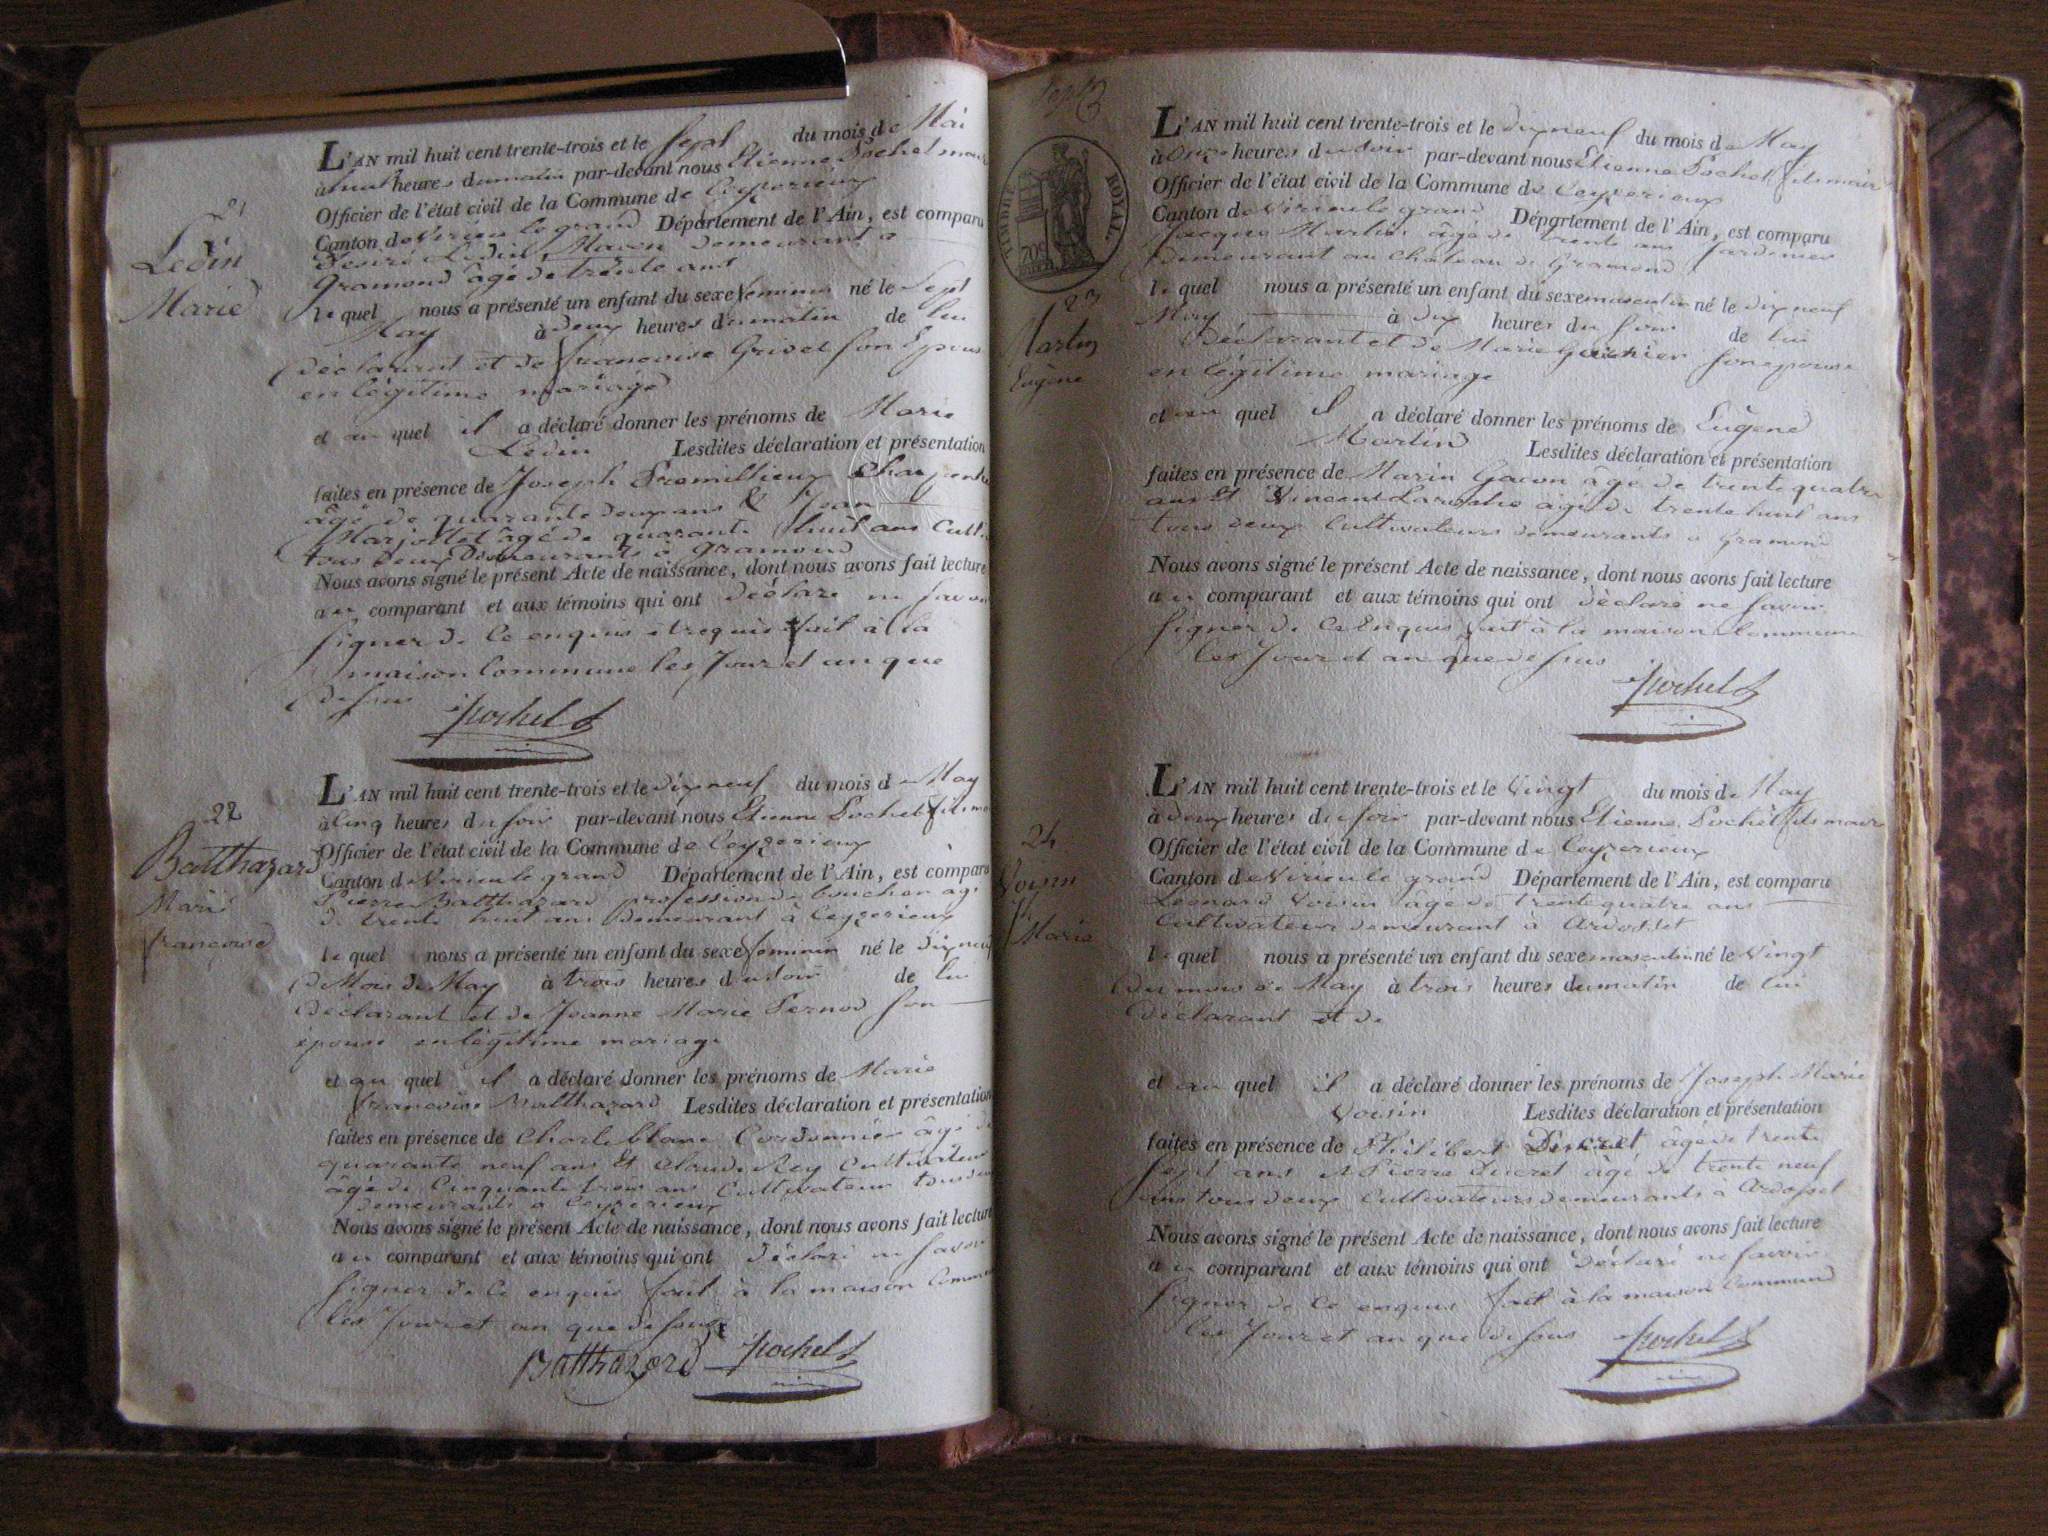 21
Ledin
Marie
L'AN mil huit cent trente-trois et le sept du mois de Mai
à huit heures du matin par-devant nous Etienne Pochet maire
Officier de l'état civil de la Commune de Ceyzerieux
Canton de Virieu le grand Département de l'Ain, est comparu
Ledin, Maçon demeurant a
Gramond âgé de trente ans
lequel nous a présenté un enfant du sexe feminin né le Sept
May à deux heures du matin de lui
déclarant et de francoise Grivel son Epouse
en légitime mariage
et au quel il a déclaré donner les prénoms de Marie
Ledin Lesdites déclaration et présentation
faites en présence de Joseph Promillieux Charpentier
âgé de quarante deux ans & Jean
Marjollet âgé de quarante huit ans Cult.
tous deux Demeurants à Gramond
Nous avons signé le présent Acte de naissance, dont nous avons fait lecture
au comparant et aux témoins qui ont déclaré ne savoir
signer de ce enquis et requis fait à la
maison Commune les Jour et an que
dessus
Pochet
22
Balthazard
Marie
francoise
L'AN mil huit cent trente-trois et le dix neuf du mois de May
à Cinq heures du soir par-devant nous Etienne Pochet fils maire
Officier de l'état civil de la Commune de Ceyzerieux
Canton de Virieu le grand Département de l'Ain, est comparu
Pierre Balthazard profession de boucher agé
de trente huit ans Demeurant à Ceyzerieux
lequel nous a présenté un enfant du sexe feminin né le dix neuf
du Mois de May à trois heures du soir de lui
Déclarant et de Jeanne Marie Pernod son
épouse en légitime mariage
et au quel il a déclaré donner les prénoms de Marie
francoise Balthazard Lesdites déclaration et présentation
faites en présence de Charle blanc Cordonnier âgé de
quarante neuf ans Et Claude Rey Cultivateur
âgé de Cinquante trois ans Cultivateur tous deux
demeurants a Ceyzerieux
Nous avons signé le présent Acte de naissance, dont nous avons fait lecture
au comparant et aux témoins qui ont déclaré ne savoir
signer de Ce enquis fait à la maison Commune
les Jour et an que dessus
Balthazard Pochet
TIMBRE ROYAL
23
Martin
Eugène
L'AN mil huit cent trente-trois et le dix neuf du mois de May
à Onze heures du soir par-devant nous Etienne Pochet fils maire
Officier de l'état civil de la Commune de Ceyzerieux
Canton de Virieu le grand Département de l'Ain, est comparu
Jacque Martin âgé de trente ans Jardinier
demeurant au Chateau de Gramond
lequel nous a présenté un enfant du sexe masculin né le dix neuf
May à dix heures du soir de lui
Déclarant et de Marie son epouse
en légitime mariage
et au quel il a déclaré donner les prénoms de Eugène
Martin Lesdites déclaration et présentation
faites en présence de Marin Gacon âgé de trente quatre
ans Et Vincent Laroche âgé de trente huit ans
tous deux Cultivateurs demeurants a Gramond
Nous avons signé le présent Acte de naissance, dont nous avons fait lecture
au comparant et aux témoins qui ont déclaré ne savoir
signer de Ce Enquis fait à la maison Commune
les Jour et an que dessus
Pochet
24
Voisin
Marie
L'AN mil huit cent trente-trois et le Vingt du mois de May
à deux heures du soir par-devant nous Etienne Pochet fils maire
Officier de l'état civil de la Commune de Ceyzerieux
Canton de Virieu le grand Département de l'Ain, est comparu
Léonard Voisin âgé de trente quatre ans
Cultivateur demeurant à Ardosset
lequel nous a présenté un enfant du sexe masculin né le Vingt
du mois de May à trois heures du matin de lui
Déclarant et de
et au quel il a déclaré donner les prénoms de Joseph Marie
Voisin Lesdites déclaration et présentation
faites en présence de Philibert Ducret âgé de trente
sept ans & Pierre Ducret âgé de trente neuf
ans tous deux Cultivateurs demeurants à Ardosset
Nous avons signé le présent Acte de naissance, dont nous avons fait lecture
au comparant et aux témoins qui ont Déclaré ne savoir
signer de Ce enquis fait à la maison Commune
les Jour et an que dessus
Pochet